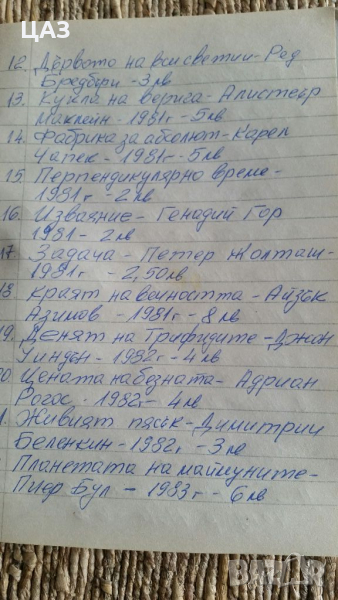 ЦАЗ
12. Дървото на вси светии - Рей
Бредбъри - 3 лв
13. Кукла на верига - Алистеър
Маклейн - 1981г - 5 лв
14. Фабрика за абсолют - Карел
Чапек - 1981г - 5 лв
15. Перпендикулярно време -
1981г - 2 лв
16. Изваяние - Генадий Гор
1981 - 2 лв
17. Задача - Петер Жолташ -
1981г - 2,50 лв
18. Краят на вечността - Айзък
Азимов - 1981г - 8 лв
19. Денят на Трифидите - Джон
Уиндъм - 1982г - 4 лв
20. Цената на бездната - Адриан
Рогос - 1982г - 4 лв
1. Живият пясък - Димитрий
Беленкин - 1982г - 3 лв
Планетата на маймуните -
Пиер Бул - 1983г - 6 лв
BAZAR